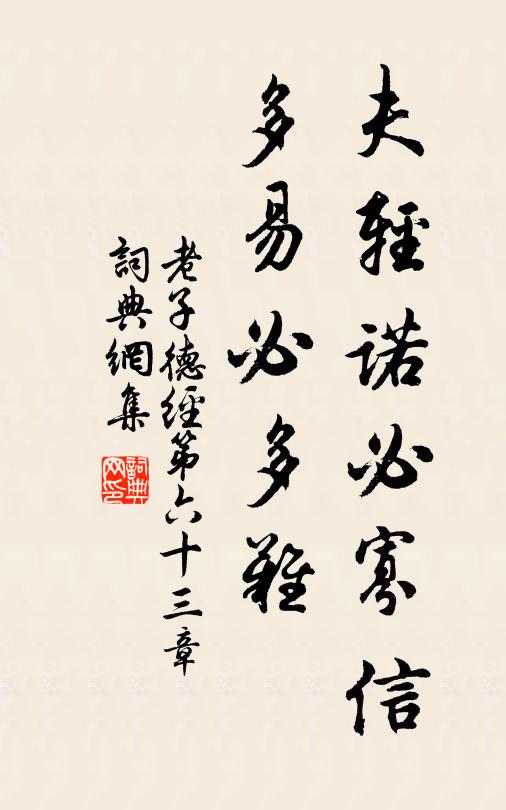 夫輕諾必寡信
多易必多難
老子德經第六十三章
詞典網集
詞典网印